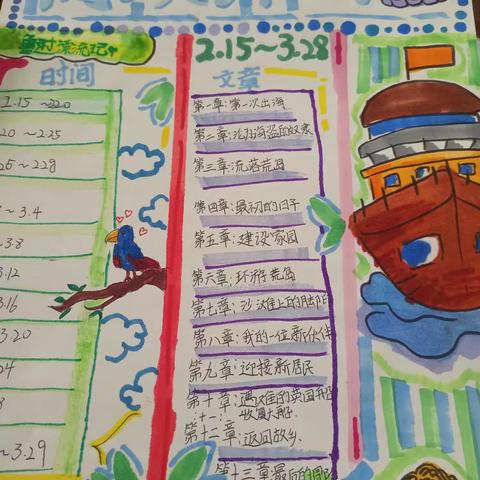 漂流记
2.15～3.28
时间
文章
2.15～2.20
20～2.25
25～2.28
～3.4
～3.8
3.12
3.16
3.20
24
8
～3.29
第一章：第一次出海
第二章：沦为海盗的奴隶
第三章：流落荒岛
第四章：最初的日子
第五章：建设家园
第六章：环游荒岛
第七章：沙滩上的脚印
第八章：我的一位新伙伴
第九章 迎接新居民
第十章：遇难的英国船
十一：收复大船
第十二章：返回故乡
第十三章 最后的